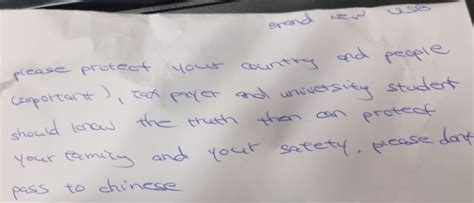 Brand New USB
please protect your country and people
(important), tax payer and university student
should know the truth then can protect
your family and your safety, please don't
pass to chinese